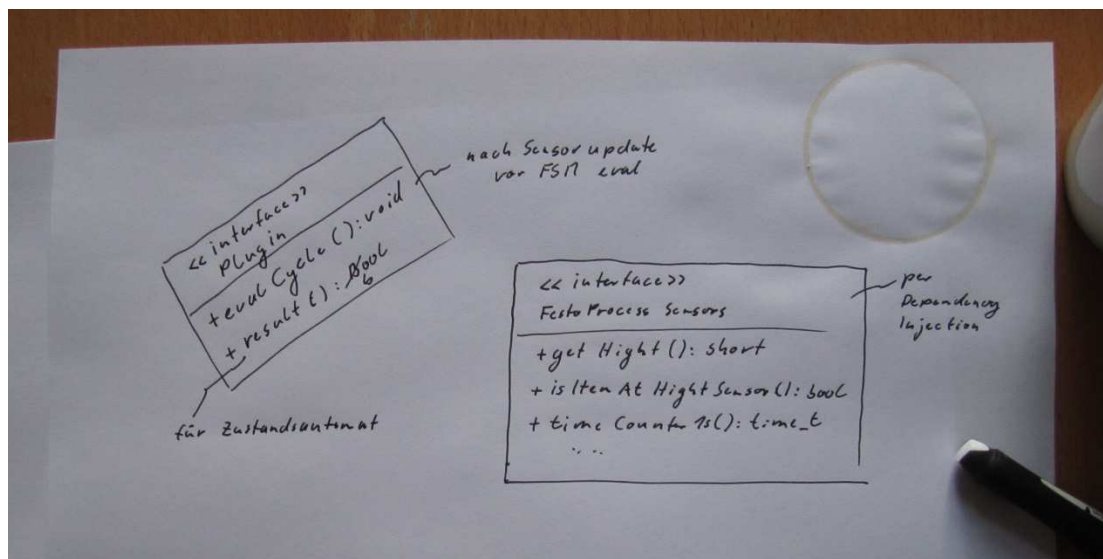 << interface >>
Plugin
+ evalCycle(): void
+ result(): bool
nach Sensorupdate
vor FSM eval
für Zustandsautomat
<< interface >>
FestoProcessSensors
+ getHight(): short
+ isItemAtHightSensor(): bool
+ timeCounter1s(): time_t
....
per
Dependency
Injection